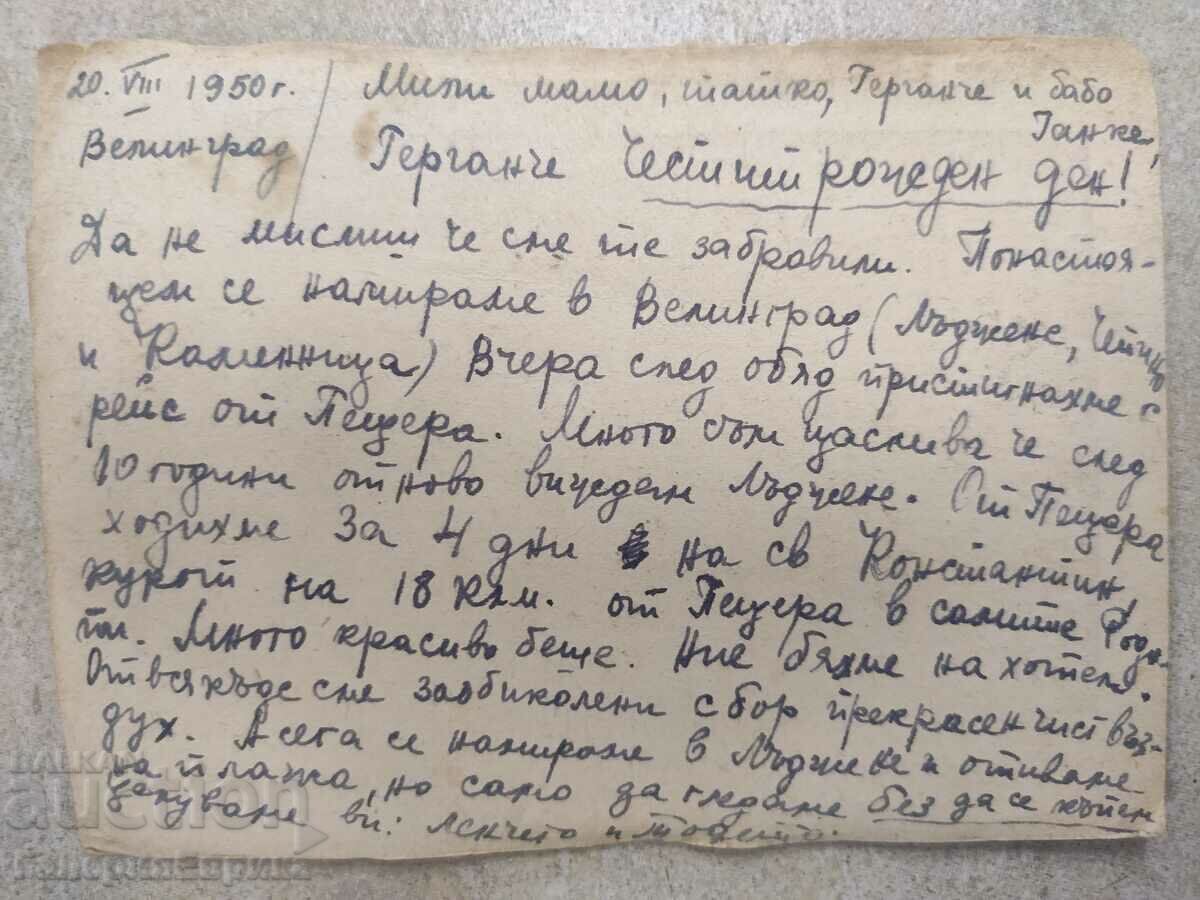 20. VIII 1950 г. / Мили мамо, татко, Герганче и бабо
Ганке,
Велинград / Герганче Честит рожеден ден!
Да не мислиш че сме те забравили. Понастоя-
щем се намираме в Велинград (Лъджене, Чепино
и Каменица) Вчера след обяд пристигнахме с
рейс от Пещера. Много съм щаслива че след
10 години отново виждам Лъджене. От Пещера
ходихме за 4 дни на св Константин,
курорт на 18 клм. от Пещера в самите Родо-
пи. Много красиво беше. Ние бяхме на хотел.
Отвсякъде сме заобиколени с бор прекрасен чист въз-
дух. А сега се намираме в Лъджене и отиваме
на плажа, но само да гледаме без да се къпем
Целуваме ви: Ленчето и
БАЛКАН
auction
Галерия Еврика